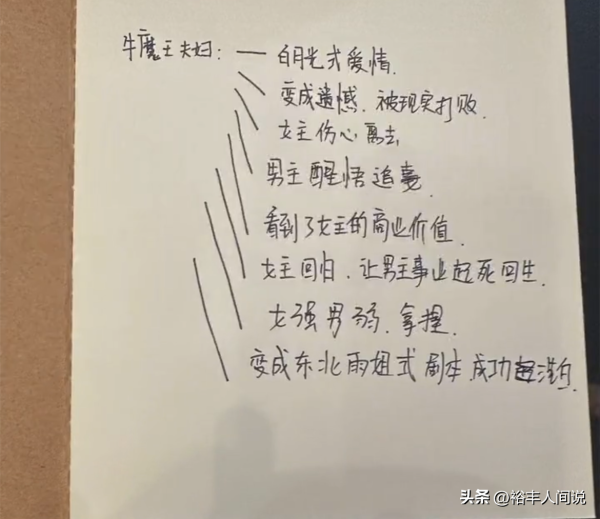 牛魔王夫妇：— 白月光式爱情.
变成遗憾. 被现实打败.
女主伤心离去
男主醒悟追妻.
看到了女主的商业价值.
女主回归. 让男主事业起死回生.
女强男弱. 拿捏.
变成东北雨姐式剧本 成功起
头条 @裕丰人间说